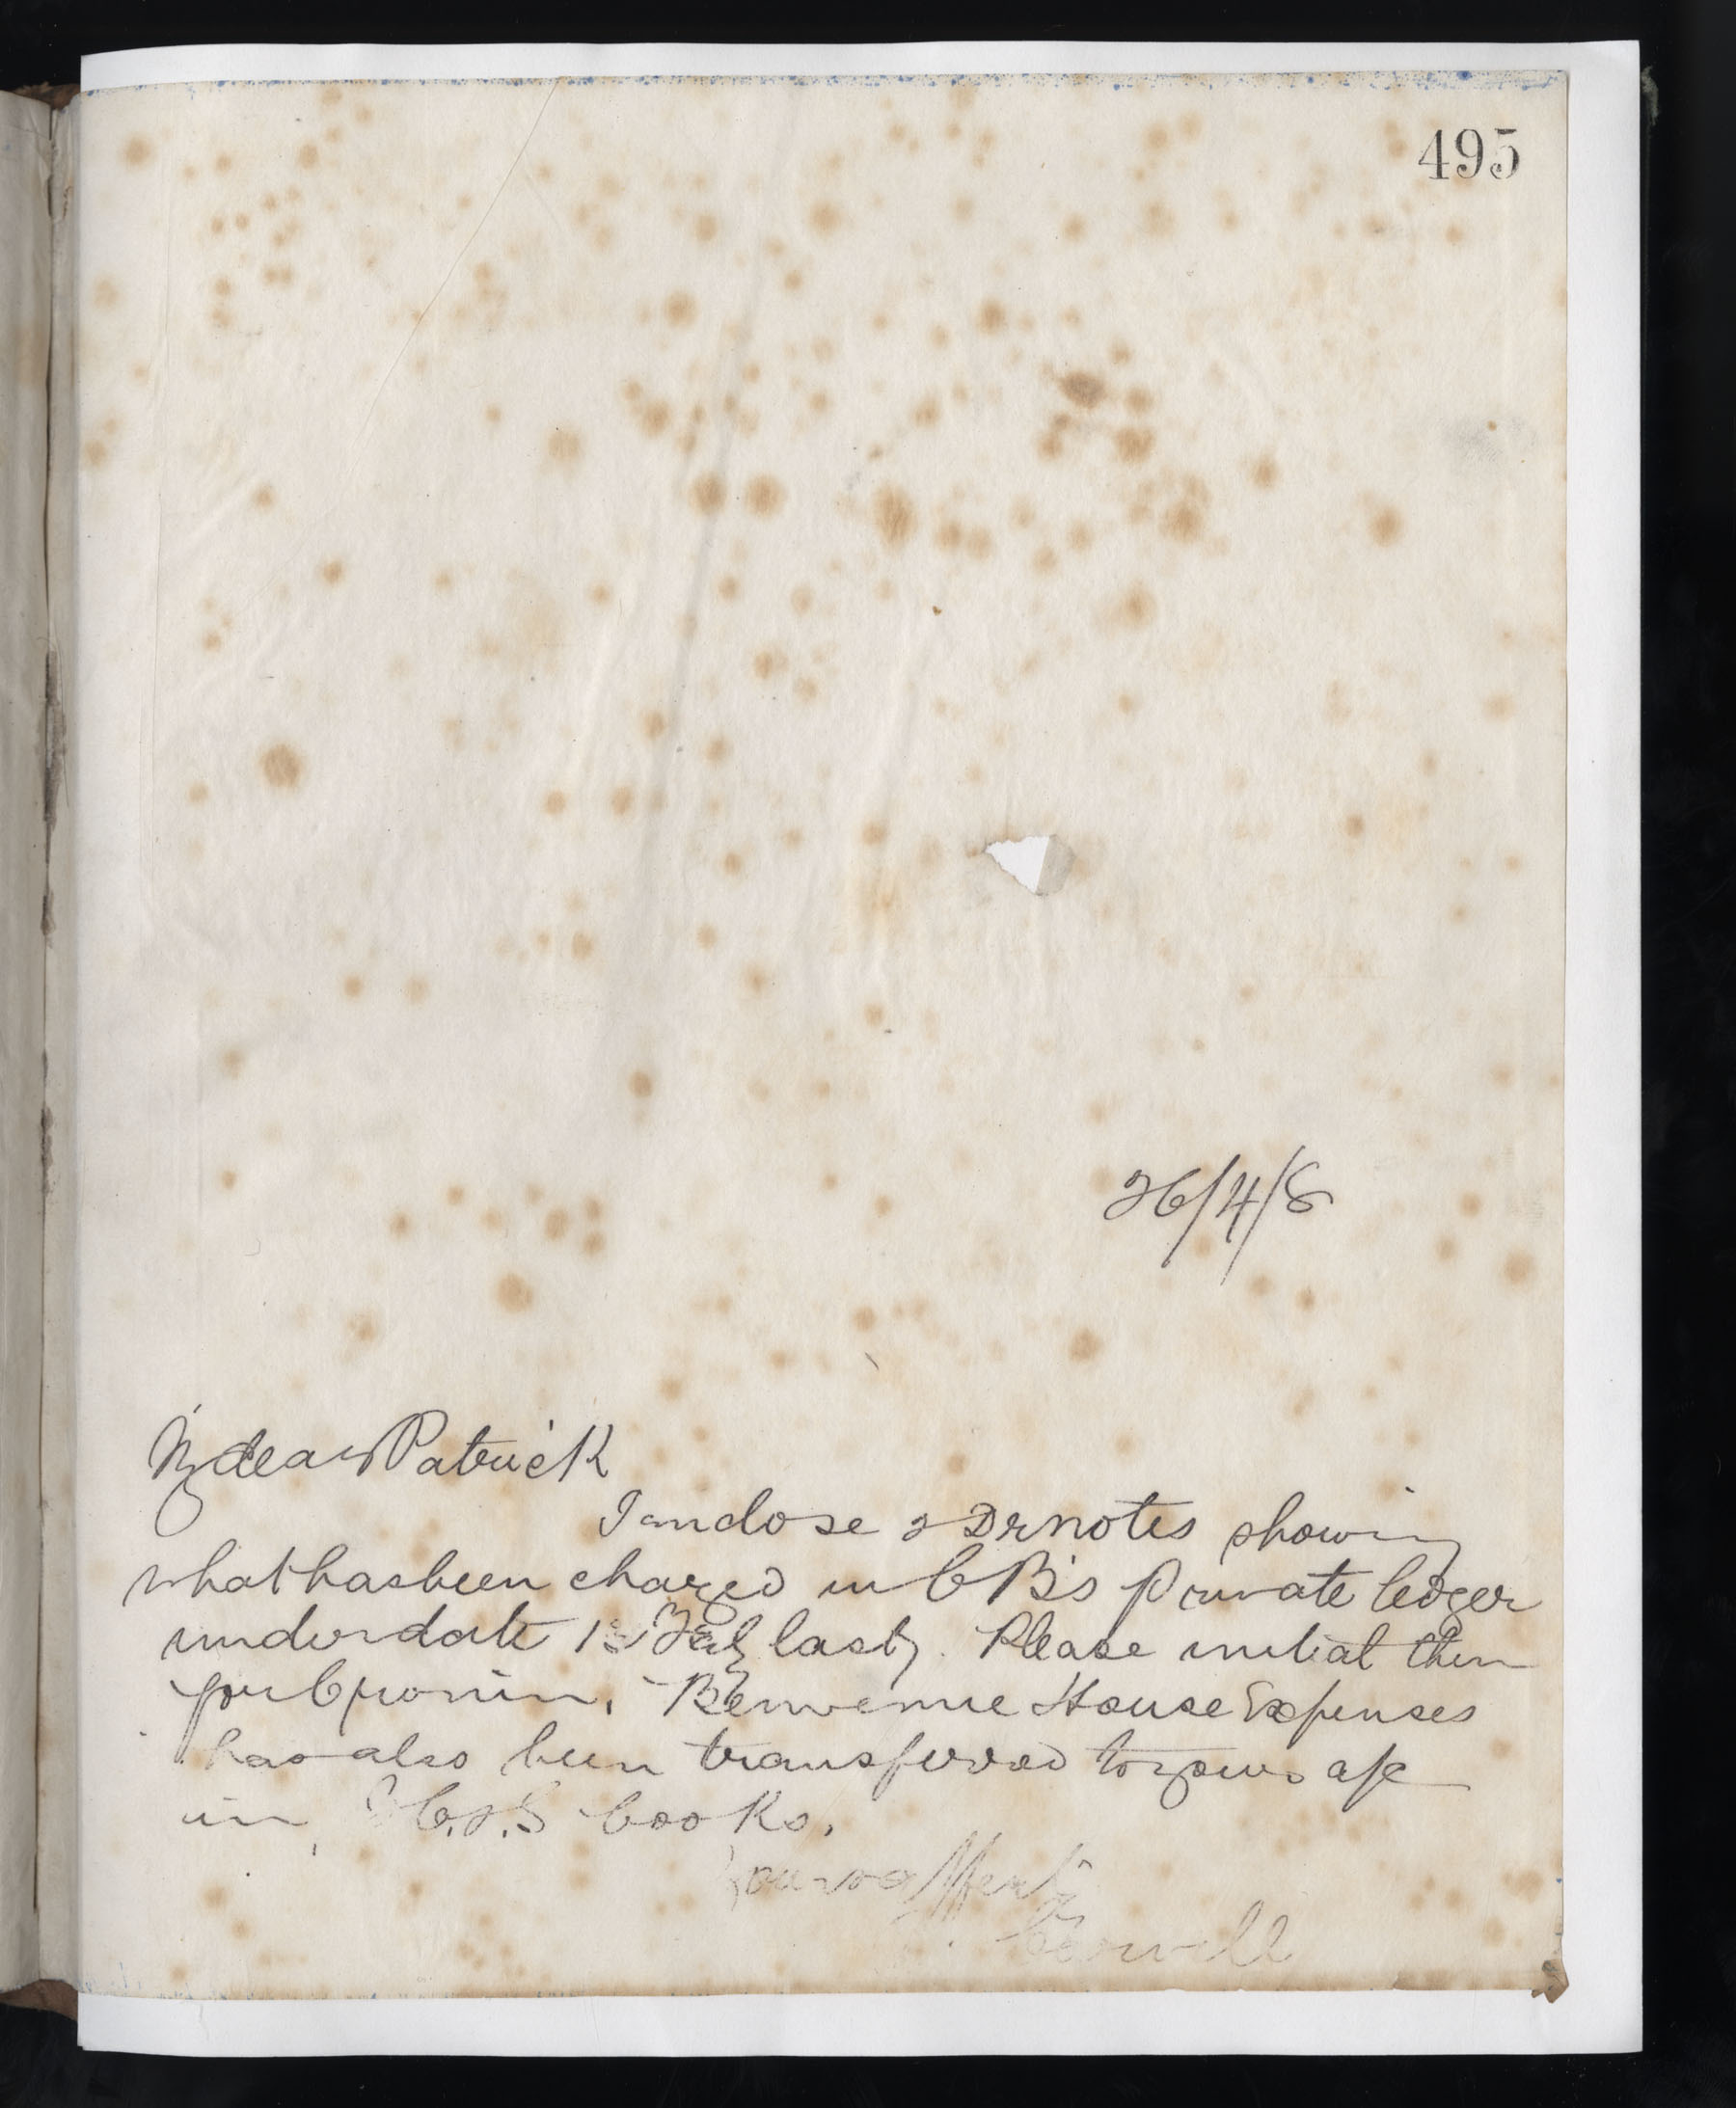 495
26/4/8
My dear Patrick
I enclose 2 Dr notes showing
what has been charged in CB's Private ledger
under date 1st last. Please initial them
for Cronin. Benvenue House Expenses
has also been transferred to your a/c
in books.
Yours affectly